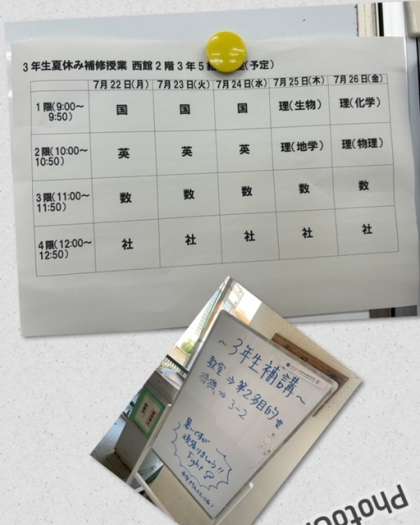 3年生夏休み補修授業 西館2階3年5 (予定)
7月22日(月) 7月23日(火) 7月24日(水) 7月25日(木) 7月26日(金)
1限(9:00～9:50) 国 国 国 理(生物) 理(化学)
2限(10:00～10:50) 英 英 英 理(地学) 理(物理)
3限(11:00～11:50) 数 数 数 数 数
4限(12:00～12:50) 社 社 社 社 社
～3年生補講～
教室⇒第2多目的室
3-2
暑いですが
頑張りましょう!!
Fight
Photo